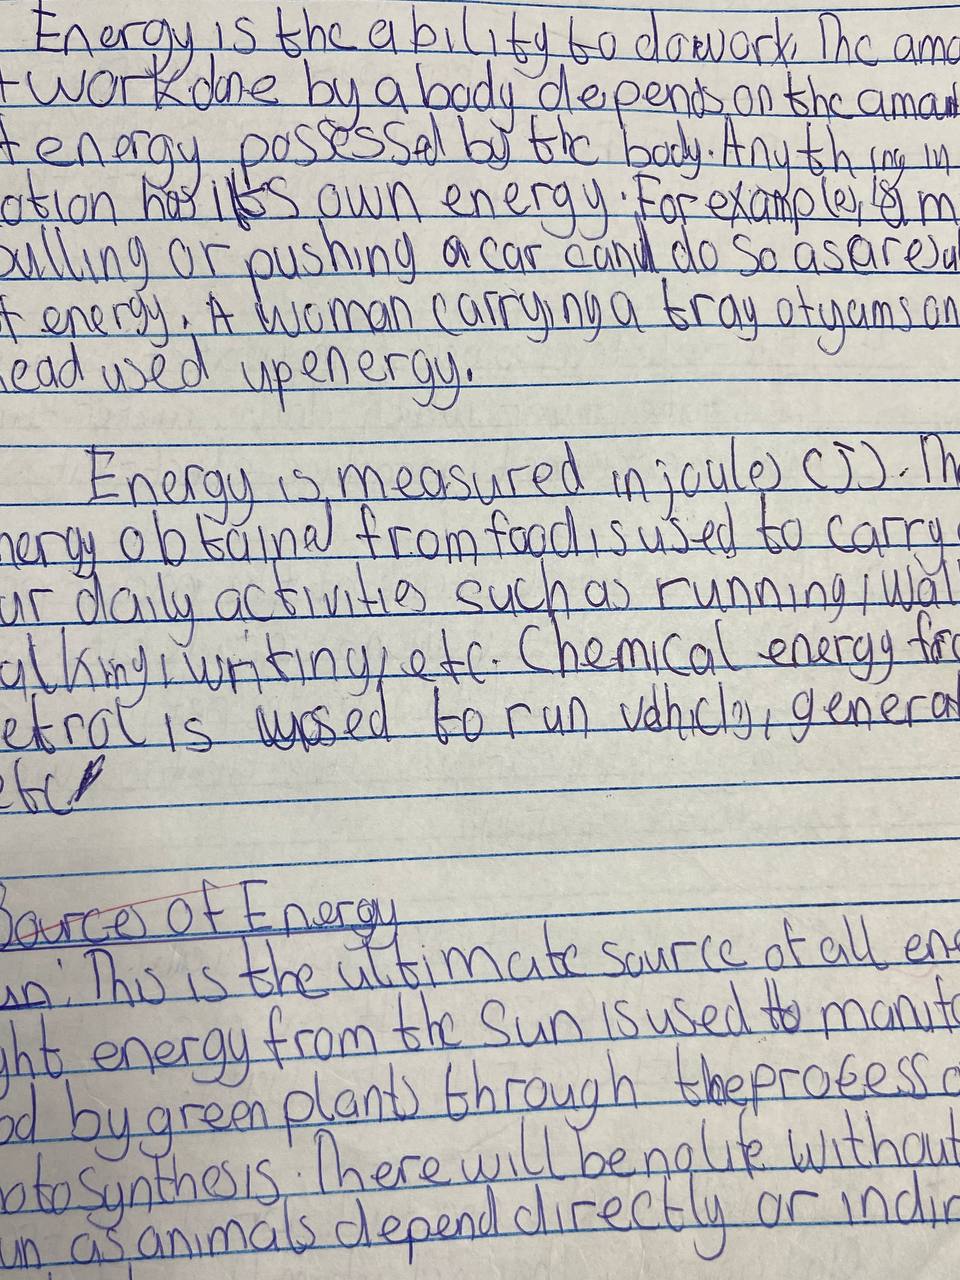 Energy is the ability to do work. The amo
t work done by a body depends on the amount
f energy possessed by the body. Any thing in
otion has its own energy. For example, a m
pulling or pushing a car cand do so as a resu
f energy. A woman carrying a tray of yams on
head used up energy.
Energy is measured in joules (J). Th
nergy obtained from food is used to carry
ur daily activities such as running, wal
alking, writing, etc. Chemical energy fro
etrol is used to run vehicls, generat
etc
Sources of Energy
un. This is the ultimate source of all ene
ght energy from the Sun is used to manufa
od by green plants through the process o
otosynthesis. There will be no life without
un as animals depend directly or indir